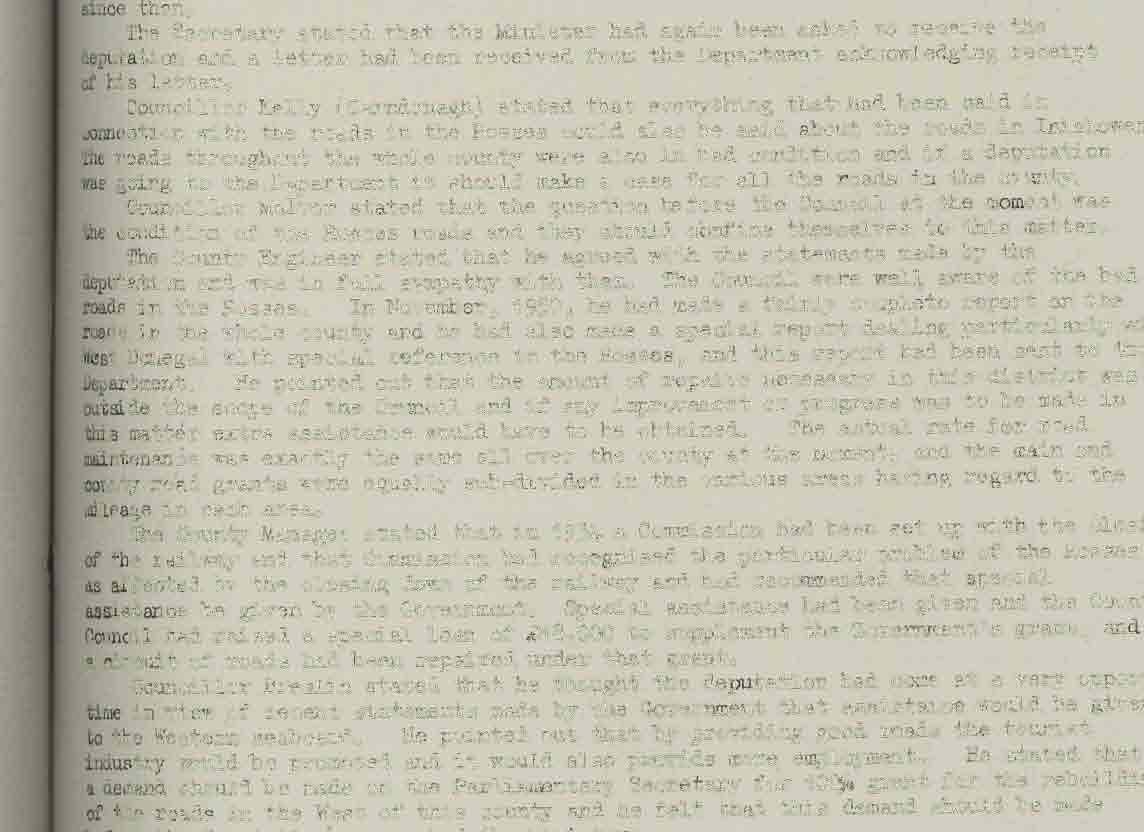 since then.
The Secretary stated that the Minister had again been asked to receive the
deputation and a letter had been received from the Department acknowledging receipt
of his letter.
Councillor Kelly (Carndonagh) stated that everything that had been said in
connection with the roads in the Rosses could also be said about the roads in Inishowen
The roads throughout the whole county were also in bad condition and if a deputation
was going to the Department it should make a case for all the roads in the county.
Councillor stated that the question before the Council at the moment was
the condition of the Rosses roads and they should confine themselves to this matter.
The County Engineer stated that he agreed with the statements made by the
deputation and was in full sympathy with them. The Council were well aware of the bad
roads in the Rosses. In November, 1950, he had made a fairly complete report on the
roads in the whole county and he had also made a special report dealing particularly
West Donegal with special reference to the Rosses, and this report had been sent to
Department. He pointed out that the amount of repairs necessary in this district was
outside the scope of the Council and if any improvement or progress was to be made in
this matter extra assistance would have to be obtained. The actual rate for road
maintenance was exactly the same all over the county at the moment, and the main and
county road grants were equally sub-divided in the various areas having regard to the
mileage in each area.
The County Manager stated that in a Commission had been set up with the
of the railway and that Commission had recognised the particular problem of the Rosses
as affected by the closing down of the railway and had recommended that special
assistance be given by the Government. Special assistance had been given and the
Council had raised a special loan of to supplement the Government's grant, and
a circuit of roads had been repaired under that grant.
Councillor Breslin stated that he thought the deputation had come at a very
time in view of recent statements made by the Government that assistance would be given
to the Western seaboard. He pointed out that by providing good roads the tourist
industry would be promoted and it would also provide more employment. He stated that
a demand should be made on the Parliamentary Secretary for 100% grant for the
of the roads in the West of this county and he felt that this demand should be made